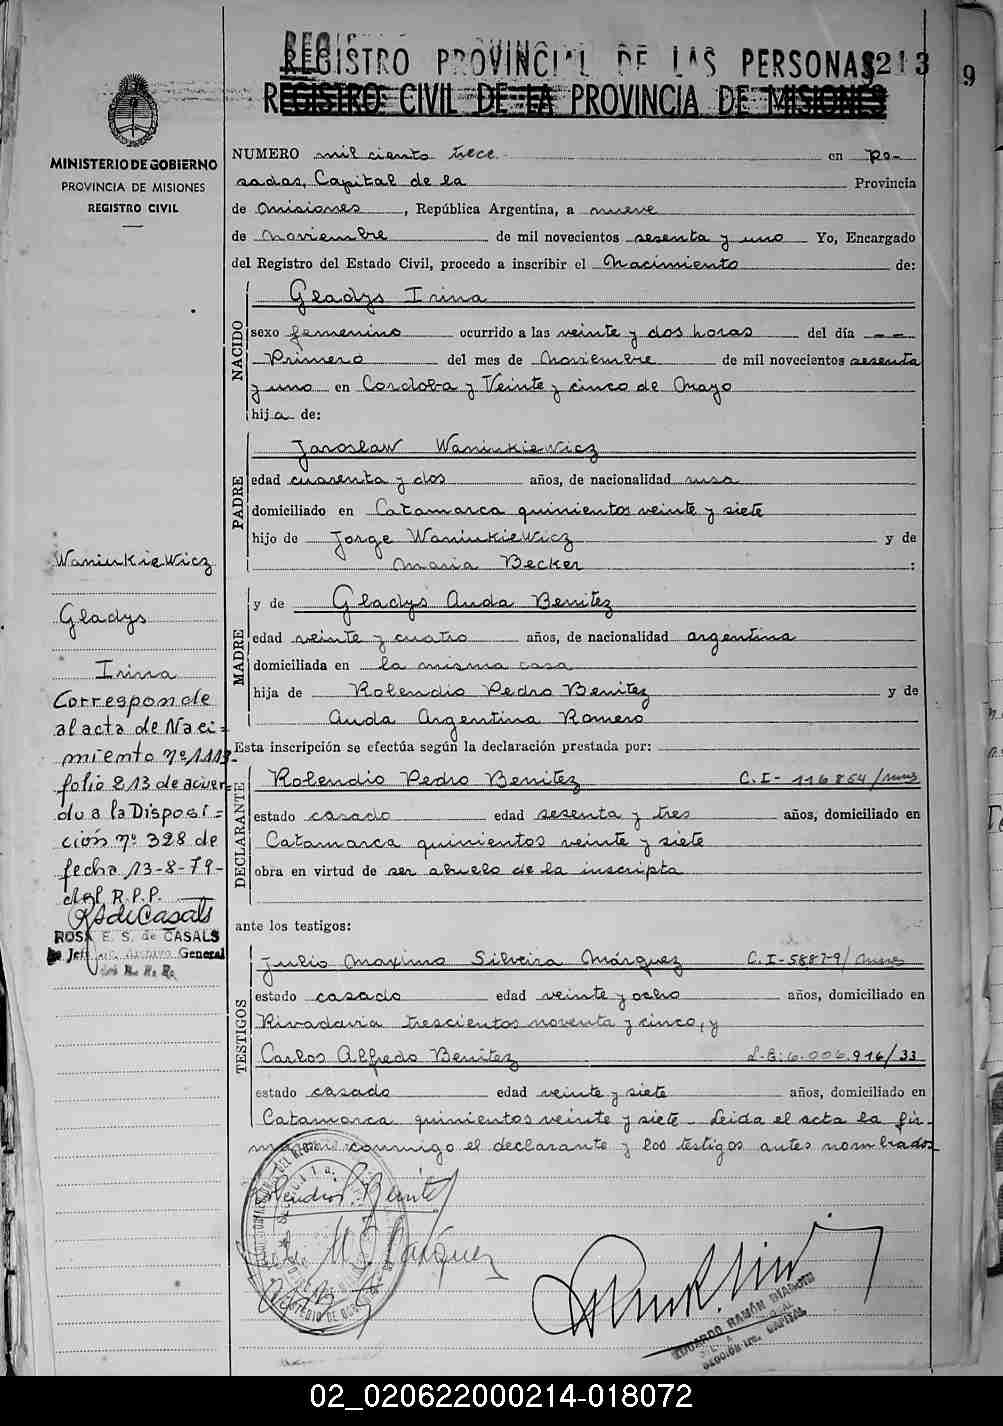 REGISTRO PROVINCIAL DE LAS PERSONAS 213
9
REGISTRO CIVIL DE LA PROVINCIA DE MISIONES
MINISTERIO DE GOBIERNO
PROVINCIA DE MISIONES
REGISTRO CIVIL
NUMERO mil ciento trece en Po-
sadas, Capital de la Provincia
de Misiones, República Argentina, a nueve
de Noviembre de mil novecientos sesenta y uno Yo, Encargado
del Registro del Estado Civil, procedo a inscribir el Nacimiento de:
NACIDO
Gladys Irina
sexo femenino ocurrido a las veinte y dos horas del día --
Primero del mes de Noviembre de mil novecientos sesenta
y uno en Cordoba y Veinte y cinco de Mayo
hija de:
PADRE
Jaroslaw Waniukiewicz
edad cuarenta y dos años, de nacionalidad rusa
domiciliado en Catamarca quinientos veinte y siete
hijo de Jorge Waniukiewicz y de
Maria Becker :
MADRE
y de Gladys Auda Benitez
edad veinte y cuatro años, de nacionalidad argentina
domiciliada en la misma casa
hija de Rolendio Pedro Benitez y de
Auda Argentina Romero
Esta inscripción se efectúa según la declaración prestada por:
DECLARANTE
Rolendio Pedro Benitez C.I- 116854/mnes
estado casado edad sesenta y tres años, domiciliado en
Catamarca quinientos veinte y siete
obra en virtud de ser abuelo de la inscripta
ante los testigos:
TESTIGOS
Julio Maximo Silveira Márquez C.I-58879/mnes
estado casado edad veinte y ocho años, domiciliado en
Rivadavia trescientos noventa y cinco, y
Carlos Alfredo Benitez L-E: 6.006.916/33
estado casado edad veinte y siete años, domiciliado en
Catamarca quinientos veinte y siete - Leida el acta la fir-
conmigo el declarante y los testigos antes nombrados-
Waniukiewicz
Gladys
Irina
Corresponde
al acta de Naci=
miento nº 1113-
folio 213 de acuer-
do a la Disposi=
ción nº 328 de
fecha 13-8-79-
del R.P.P.
ROSA E. S. de CASALS
Jefe de Archivo General
EDUARDO RAMÓN
CAPITAL
02_020622000214-018072